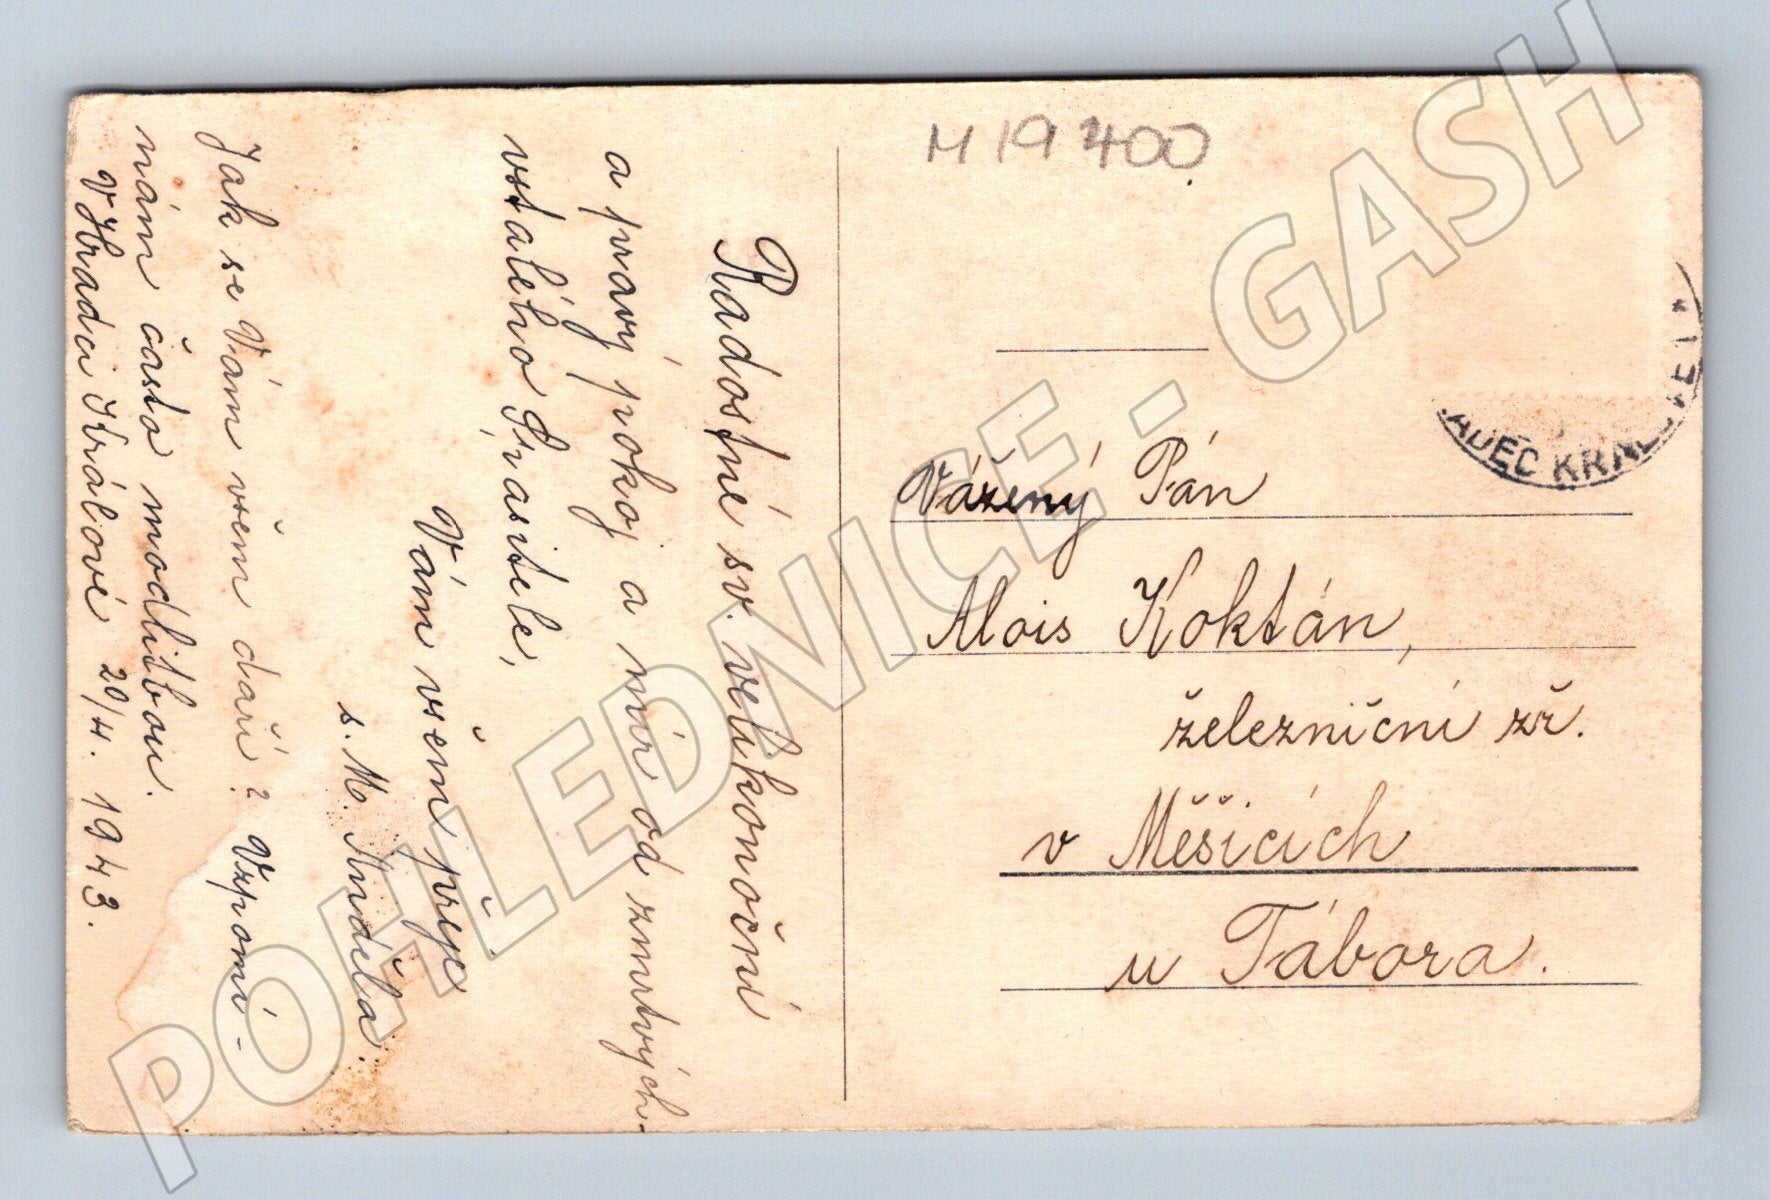 Radostné sv. velikonoční
a pravý pokoj a mír od zmrtvých-
vstalého Spasitele,
Vám všem přeje
s. M. Anděla.
Jak se Vám všem daří? Vzpomí-
nám často modlitbou.
V Hradci Králové 20/4. 1943.
M 19 400
ADEC KRÁL
Vážený Pán
Alois Koktán,
železniční zř.
v Měšicích
u Tábora.
POHLEDNICE - GASH